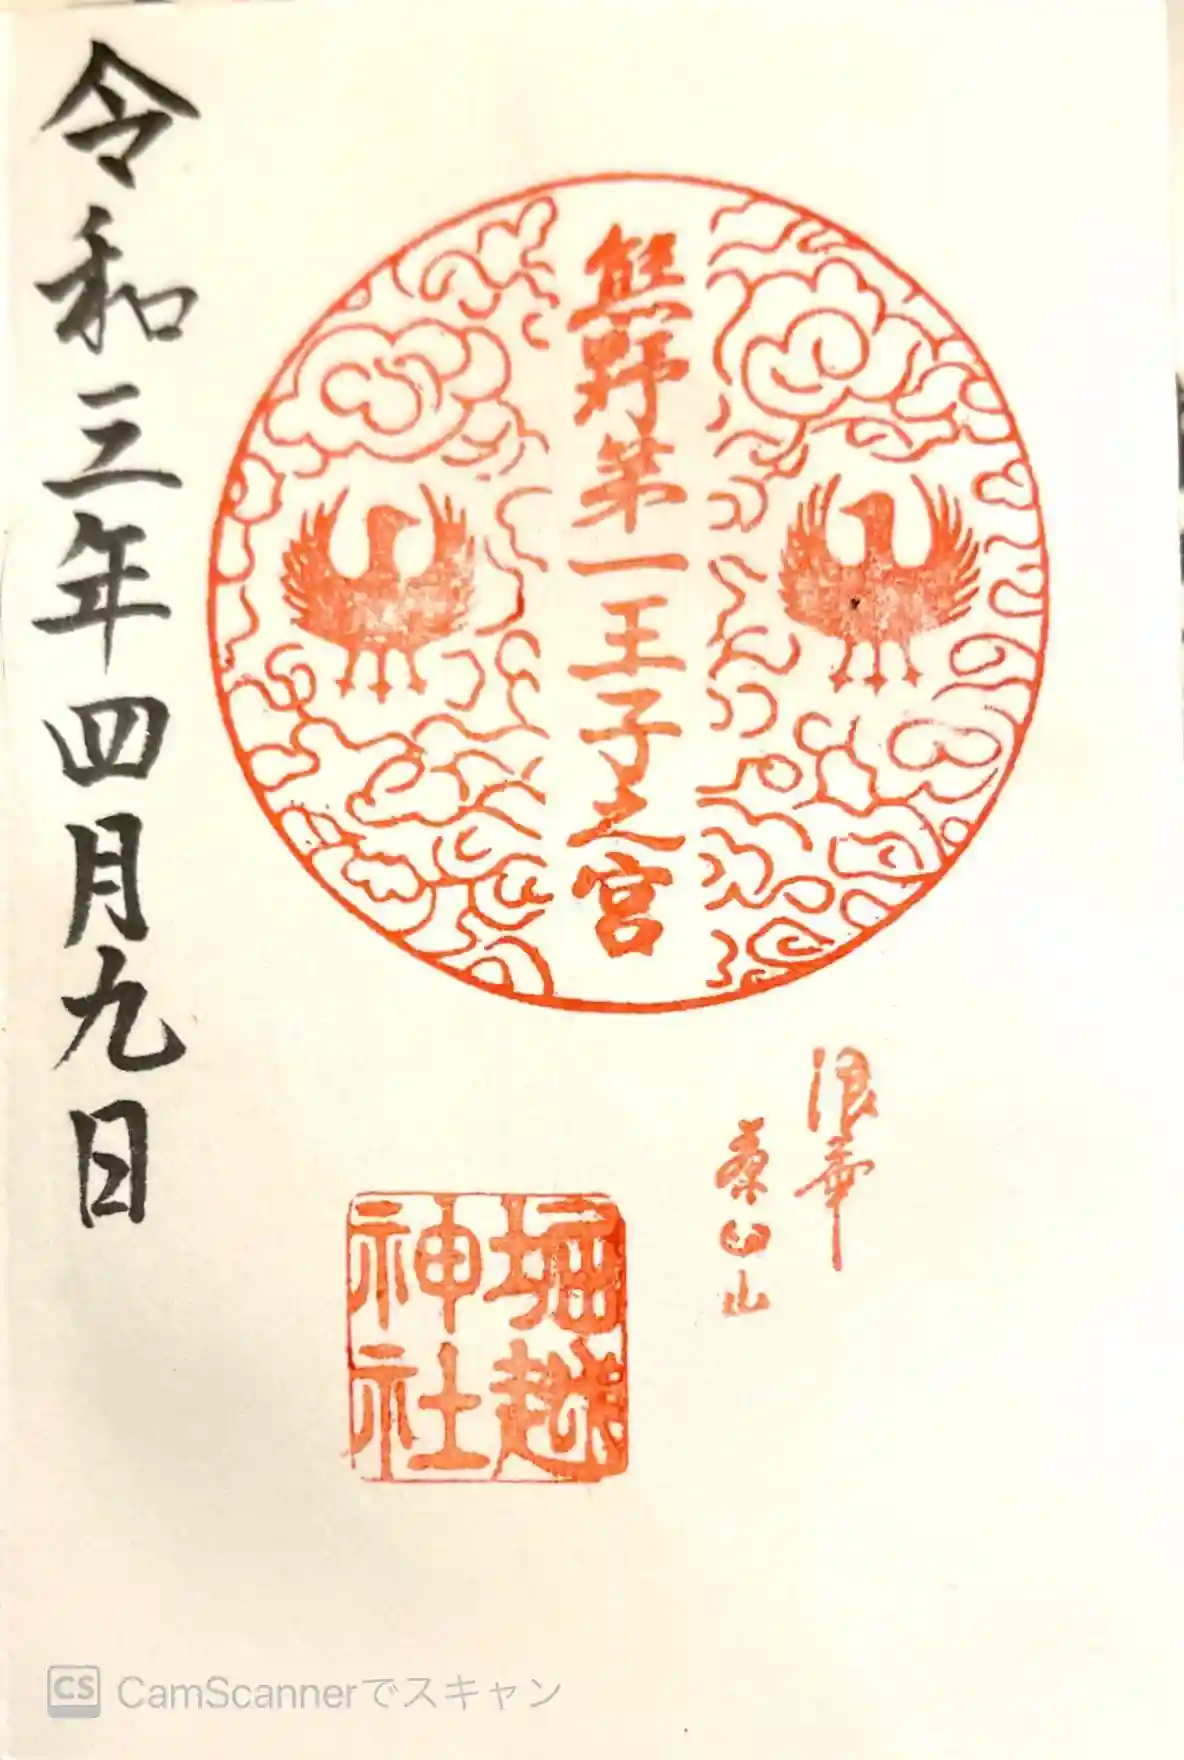 浪華
茶臼山
熊野第一王子之宮
堀越
神社
令和三年四月九日
CS CamScannerでスキャン